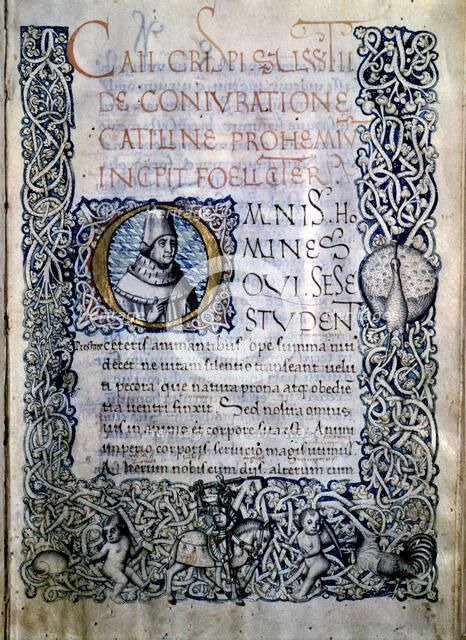 CAII CRISPI SALLVSTII
DE CONIVRATIONE
CATILINE PROHEMIV
INCIPIT FOELICITER.
OMNIS HO
MINES
QVI SESE
STVDENT
ceteris animantibus ope summa niti
decet ne vitam silentio transeant velu
ti pecora que natura prona atq obedie
tia ventri finxit Sed nostra omnis
vis in animo et corpore sita est Animi
imperio corporis servicio magis utimur
Alterum nobis cum dijs alterum cum
heritage